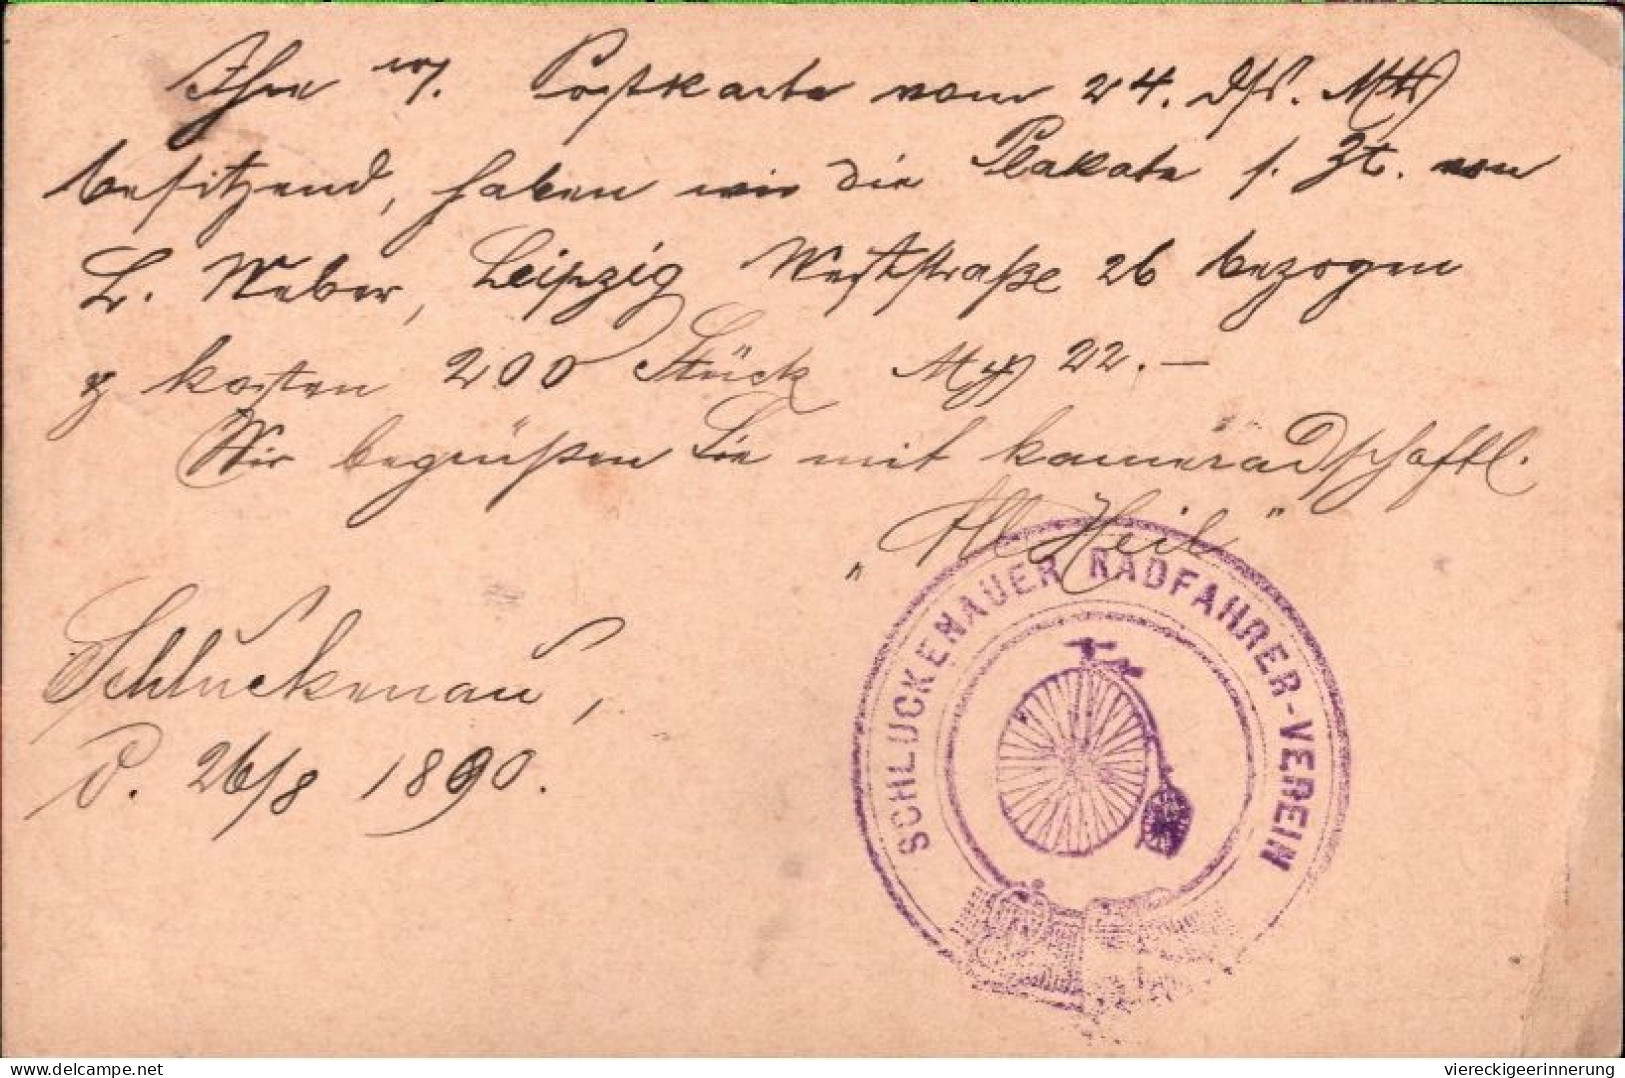 Ihre w. Postkarte vom 24. ds. Mts
besitzend, haben wir die Plakate s. Zt. von
L. Weber, Leipzig Weststraße 26 bezogen
& kosten 200 Stück Mk 22.–
Wir begrüßen Sie mit kameradschaftl.
„All Heil"
SCHLUCKENAUER RADFAHRER-VEREIN
Schluckenau,
d. 26/8 1890.
delcampe.net
viereckigeerinnerung